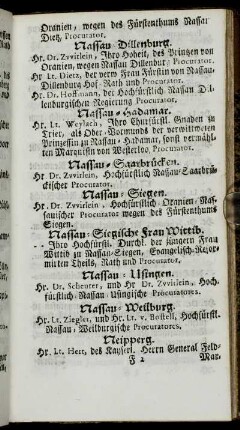 Oranien, wegen des Fürstenthums Nassau
Dietz, Procurator.
Nassau-Dillenburg.
Hr. Dr. Zvvirlein, Ihro Hoheit, des Prinzen von
Oranien, wegen Nassau Dillenburg Procurator.
Hr Lt. Dietz, der verw Frau Fürstin von Nassau-
Dillenburg Hof-Rath und Procurator.
Hr. Dr. Hoffmann, der Hochfürstlich Nassau Dil-
lenburgischen Regierung Procurator.
Nassau-Hadamar.
Hr. Lt. Weylach, Ihro Churfürstl. Gnaden zu
Trier, als Ober-Vormunds der verwittweten
Prinzessin zu Nassau-Hadamar, sonst vermähl-
ten Marquisin von Westerloo, Procurator.
Nassau-Saarbrücken.
Hr Dr. Zvvirlein, Hochfürstlich Nassau-Saarbrü-
ckischer Procurator.
Nassau-Siegen.
Hr Dr. Zvvirlein, Hochfürstlich-Oranien-Nas-
sauischer Procurator wegen des Fürstenthums
Siegen.
Nassau-Siegische Frau Wittib.
Ihro Hochfürstl. Durchl. der jüngern Frau
Wittib zu Nassau-Siegen, Evangelisch-Refor-
mirten Theils, Rath und Procurator.
Nassau-Usingen.
Hr. Dr. Scheurer, und Hr. Dr. Zvvirlein, Hoch-
fürstlich-Nassau-Usingische Procuratores.
Nassau-Weilburg.
Hr. Lt. Ziegler, und Hr. Lt. v. Bostell, Hochfürstl.
Nassau-Weilburgische Procuratores.
Neipperg.
Hr. Lt. Hert, des Kayserl. Herrn General Feld-
F 2 Mar-